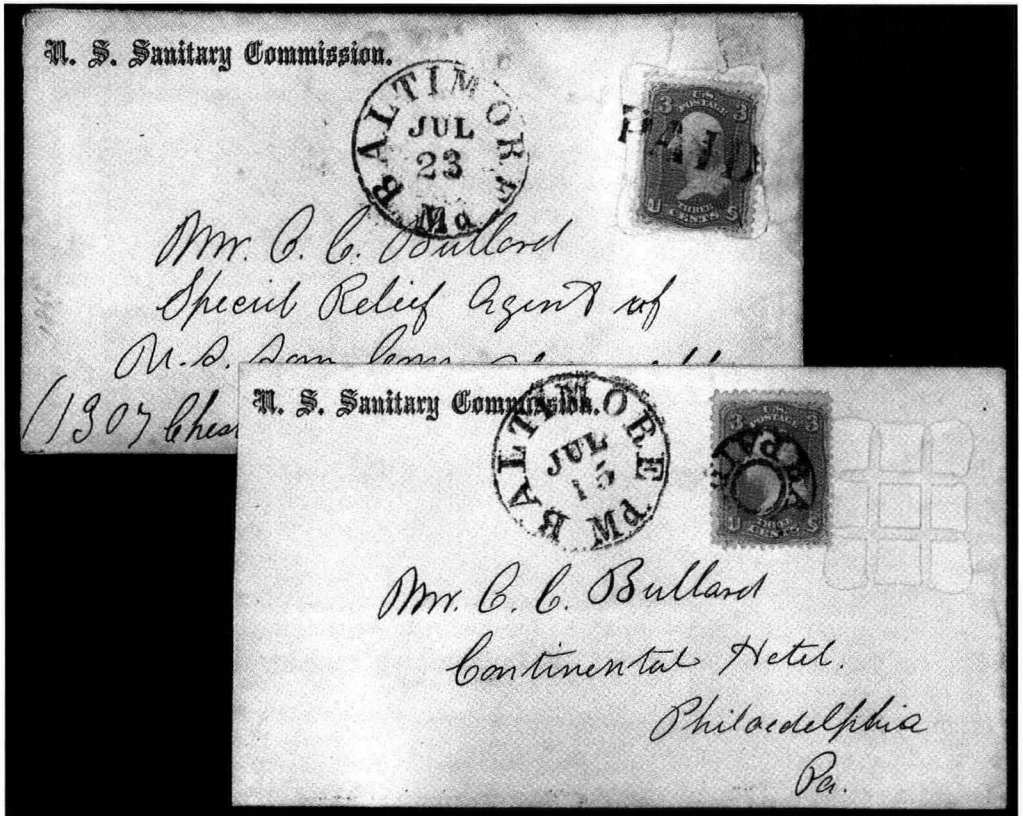 U. S. Sanitary Commission.
BALTIMORE
JUL
23
PM
3 U.S. POSTAGE 3
PAID
THREE
U CENTS S
Mr. C. C. Bullard
Special Relief Agent of
U.S. San Com
(1307 Ches
U. S. Sanitary Commission.
BALTIMORE
JUL
15
PM
3 U.S. POSTAGE 3
U CENTS S
Mr. C. C. Bullard
Continental Hotel.
Philaedelphia
Pa.